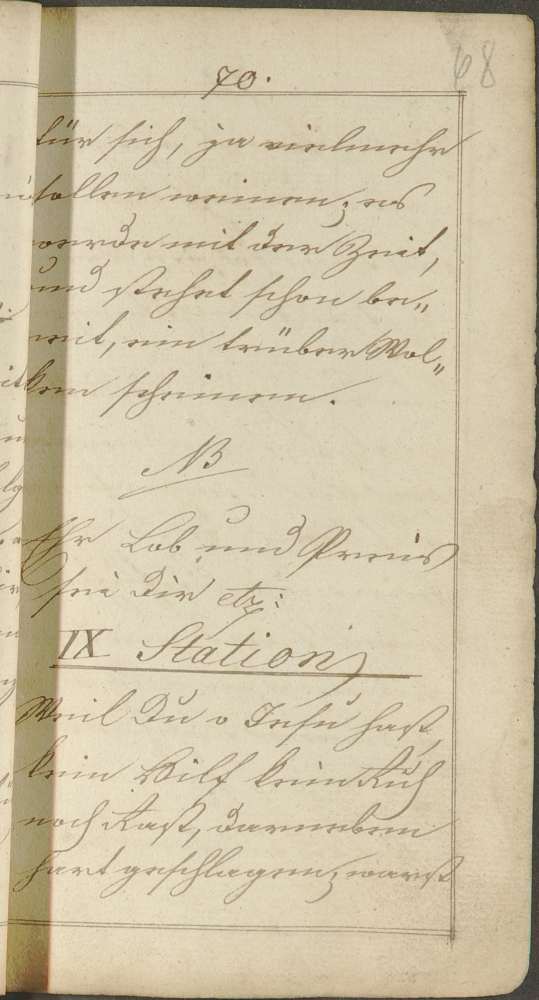 70.
68
für sich, ja vielmehr
sollen weinen; es
werde mit der Zeit,
und stehet schon be„
reit, ein trüber Wol„
ken scheinen.
NB
Ehr Lob und Preis
sei dir etz:
IX Station
Weil Du o Jesu hast,
kein Hilf kein Ruh
noch Rast, darneben
hart geschlagen; warst